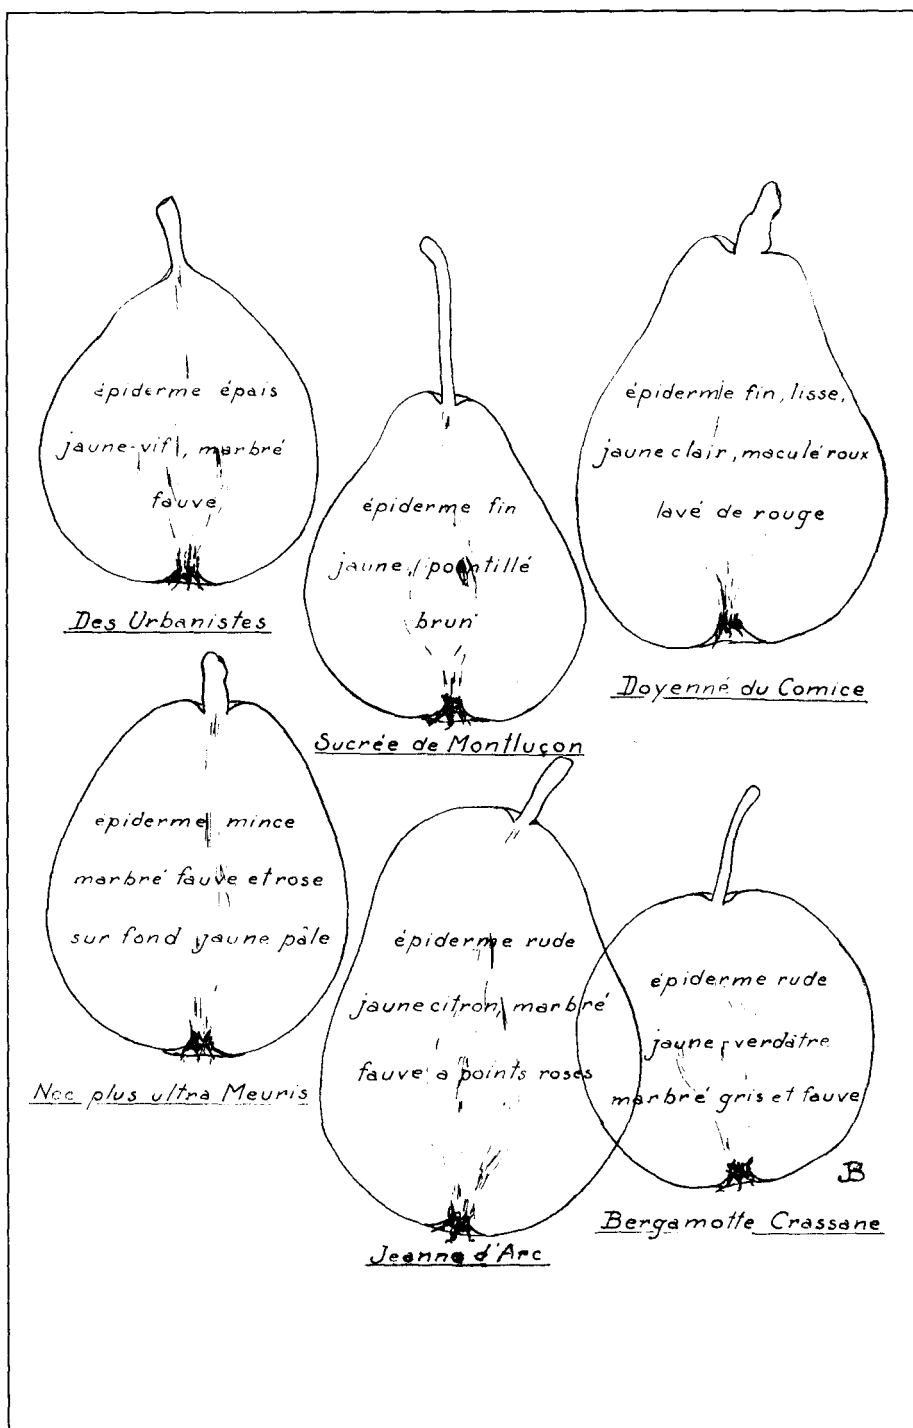 épiderme épais
jaune-vif, marbré
fauve
Des Urbanistes
épiderme fin
jaune, pointillé
brun
Sucrée de Montluçon
épiderme fin, lisse,
jaune clair, maculé roux
lavé de rouge
Doyenné du Comice
épiderme mince
marbré fauve et rose
sur fond jaune pâle
Nec plus ultra Meuris
épiderme rude
jaune citron, marbré
fauve a points roses
Jeanne d'Arc
épiderme rude
jaune-verdâtre
marbré gris et fauve
JB
Bergamotte Crassane